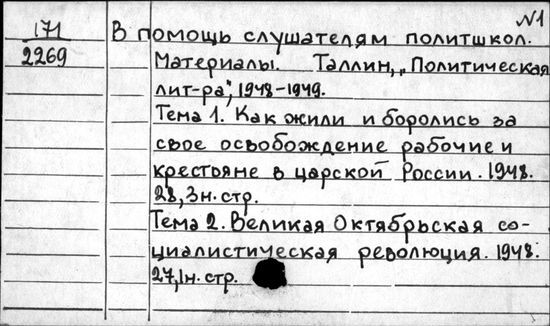 №1
171
2269
В помощь слушателям политшкол.
Материалы. Таллин, „Политическая
лит-ра", 1948-1949.
Тема 1. Как жили и боролись за
свое освобождение рабочие и
крестьяне в царской России. 1948.
28, 3н. стр.
Тема 2. Великая Октябрьская со-
циалистическая революция. 1948.
27, 1н. стр.